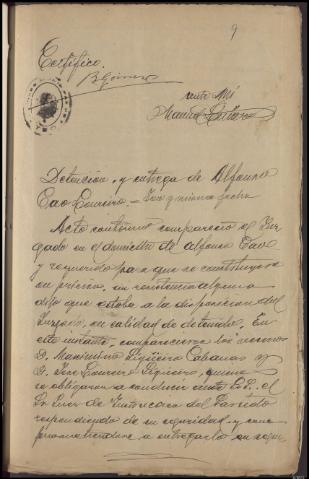 9
Certifico.
B Gómez
ante Mí
Manuel
Detencion y entrega de Alfonso
Cao Loureiro. = Los y misma fecha
Acto continuo compareció el Juz-
gado en el domicilio de Alfonso Cao
y requerido para que se constituyera
en prision, sin resistencia alguna
dijo que estaba a la disposicion del
Juzgado, en calidad de detenido. En
este instante, comparecieron los vecinos
D. Maximino Figueira Cabanas y
D. Jose Loureiro Figueira, quienes
se obligaron a conducir ante S.S. el
Sr Juez de Instruccion del Partido
respondiendo de su seguridad y com-
prometiendose a entregarlo en segui-